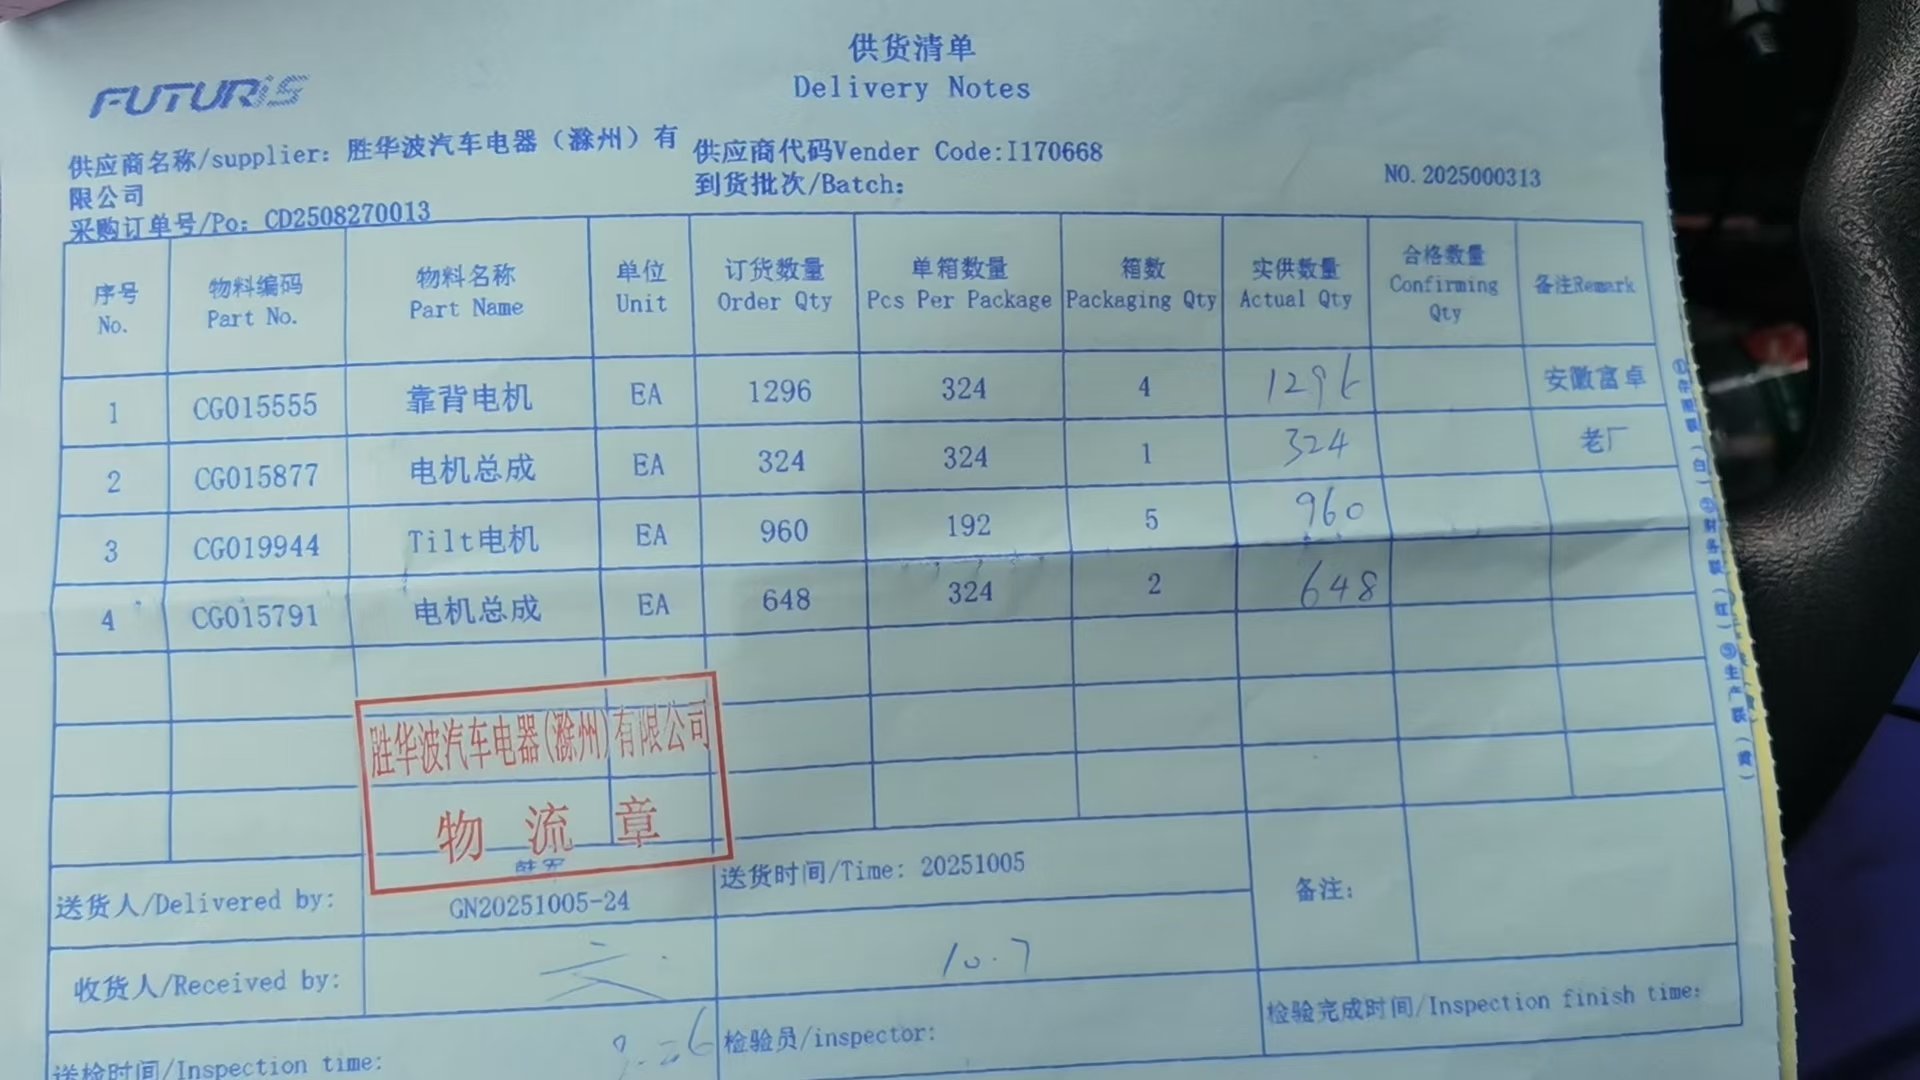 供货清单
Delivery Notes
FUTURIS
供应商名称/supplier: 胜华波汽车电器（滁州）有限公司
供应商代码Vender Code:I170668
到货批次/Batch:
NO.2025000313
采购订单号/Po: CD2508270013
序号 No. 物料编码 Part No. 物料名称 Part Name 单位 Unit 订货数量 Order Qty 单箱数量 Pcs Per Package 箱数 Packaging Qty 实供数量 Actual Qty 合格数量 Confirming Qty 备注Remark
1 CG015555 靠背电机 EA 1296 324 4 1296 安徽富卓
2 CG015877 电机总成 EA 324 324 1 324 老厂
3 CG019944 Tilt电机 EA 960 192 5 960
4 CG015791 电机总成 EA 648 324 2 648
胜华波汽车电器(滁州)有限公司
物流章
送货人/Delivered by:
GN20251005-24
送货时间/Time: 20251005
备注:
收货人/Received by:
10.7
送检时间/Inspection time:
检验员/inspector:
检验完成时间/Inspection finish time: